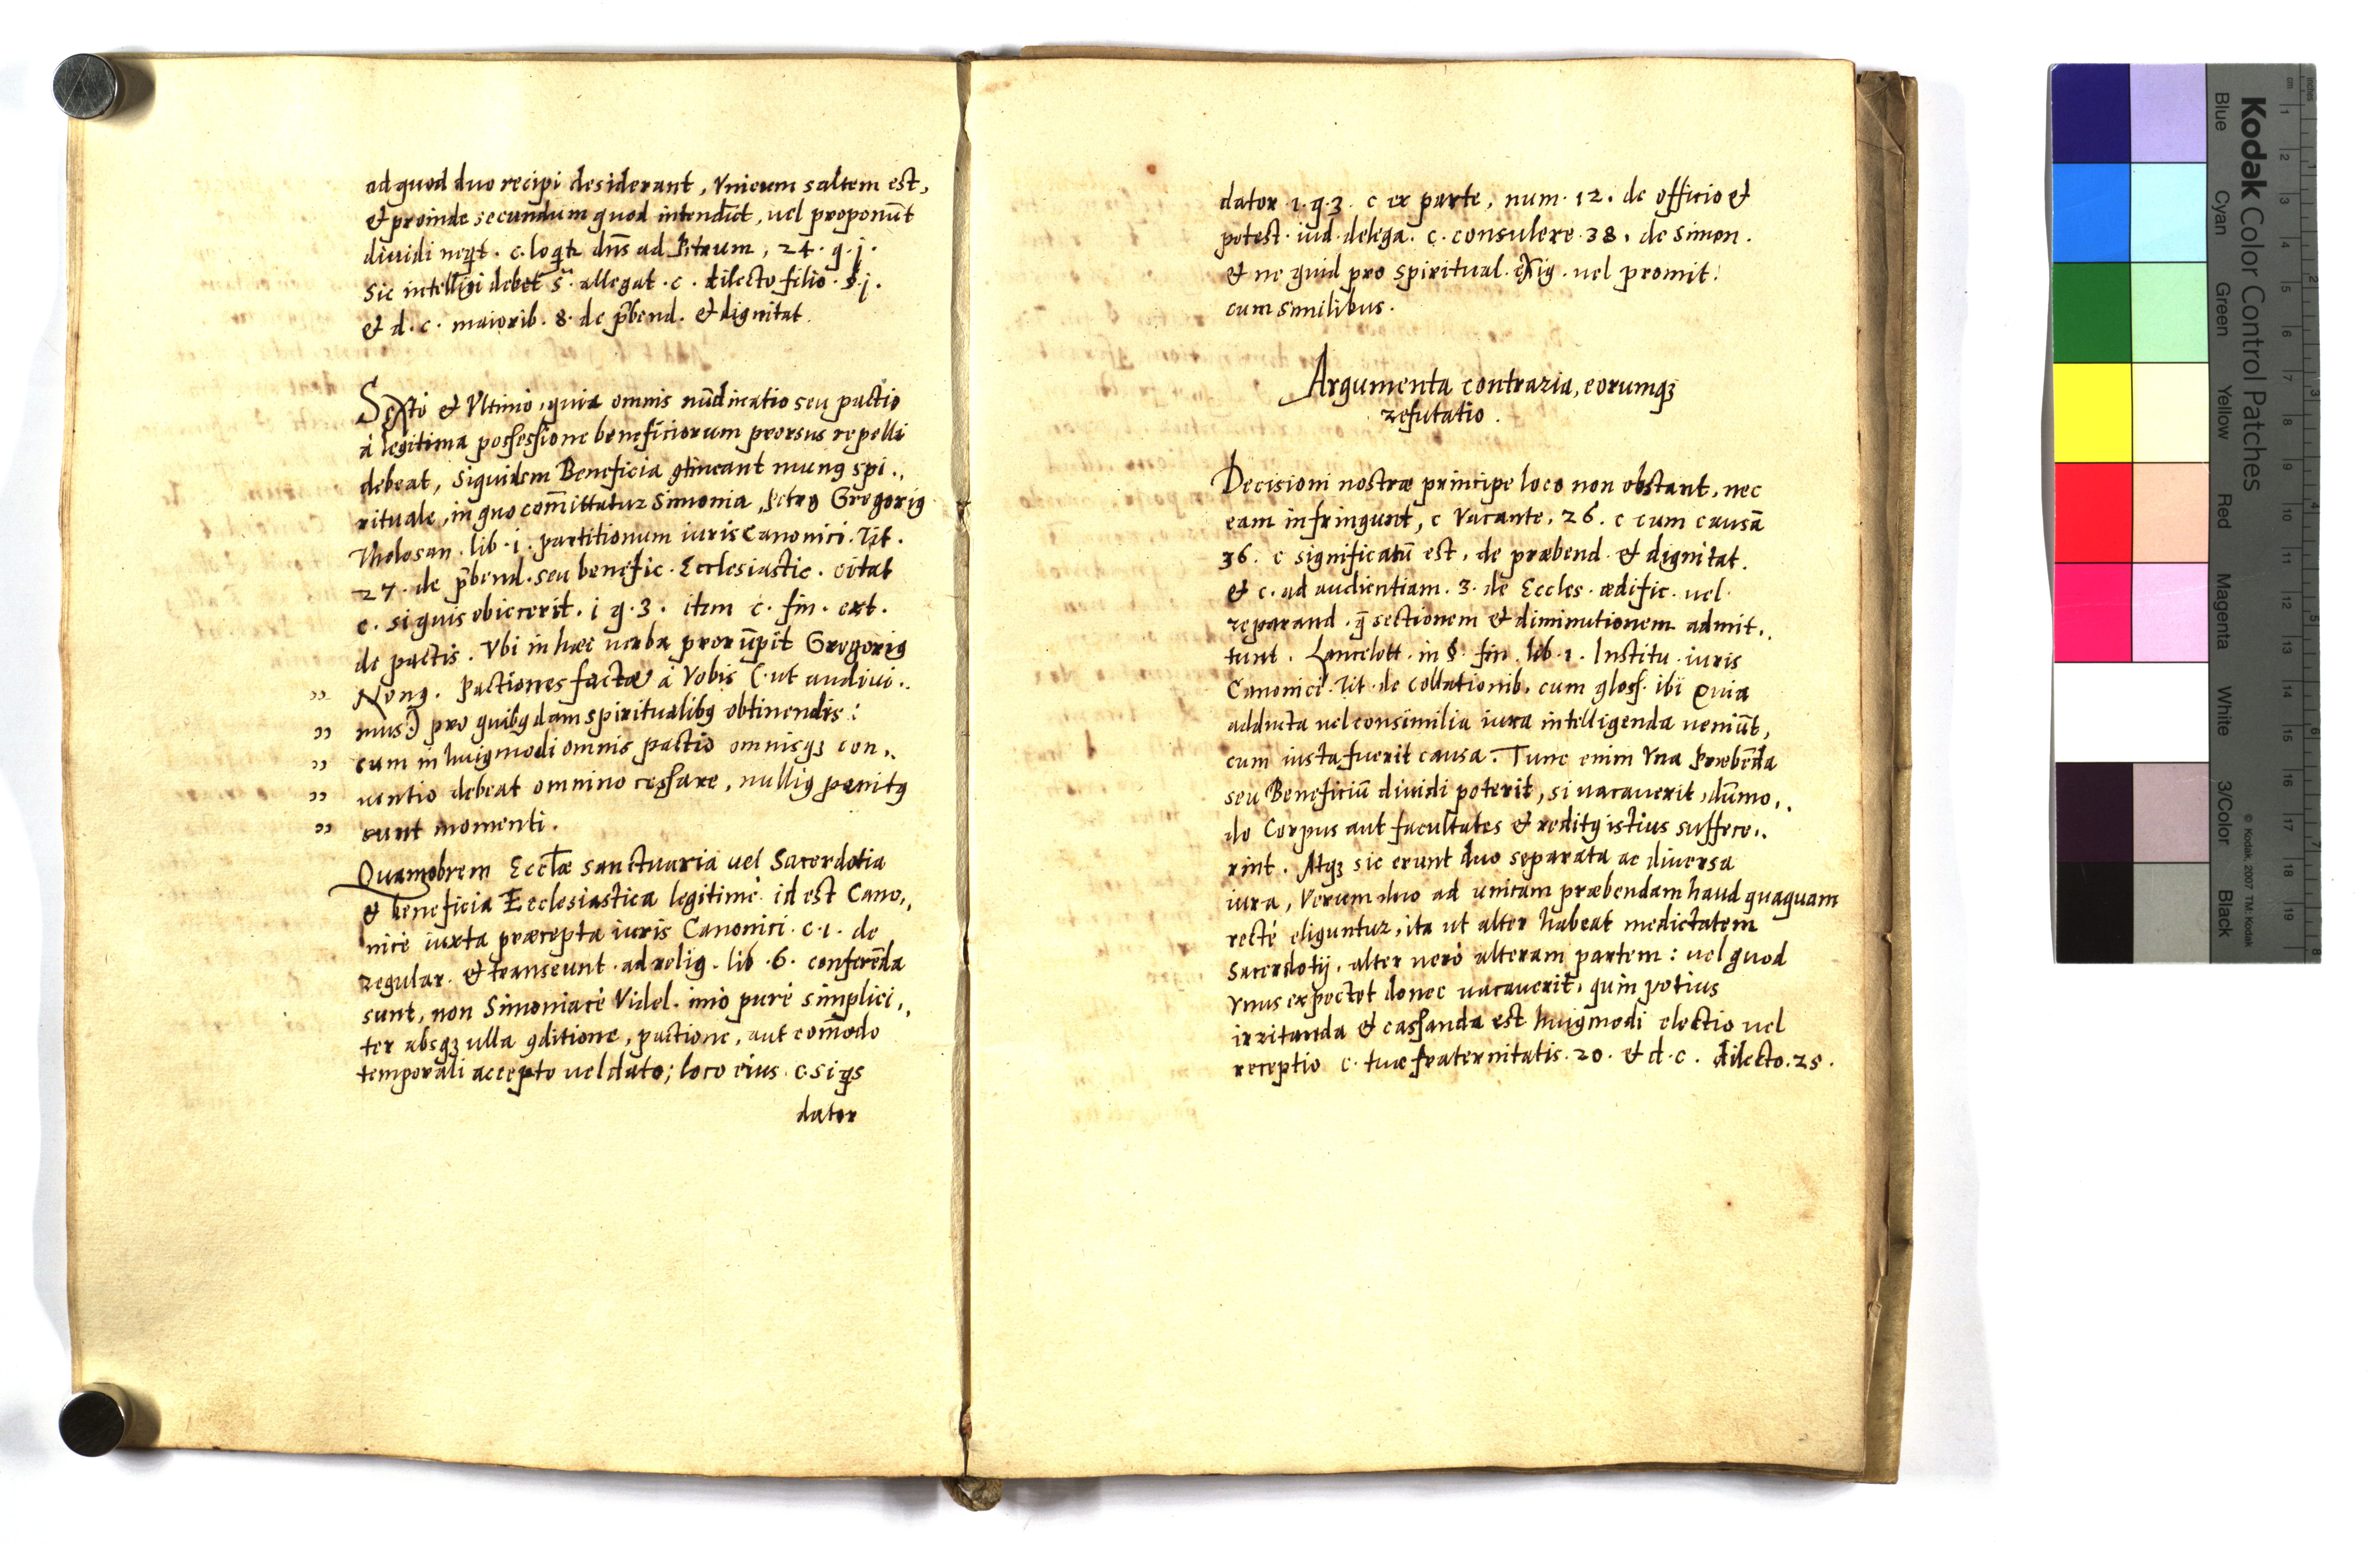 ad quod duo recipi desiderant, Vnicum saltem est,
et proinde secundum quod intendūt, uel proponūt
diuidi neq̄t. c. loq̄tr dn̄s ad Petrum, 24. q. j.
Sic intelligi debet s. allegat. c. dilecto filio. §. j.
et d. c. maiorib. 8. de p̄bend. et dignitat.
Sexto et Vltimo, quia omnis nūdinatio seu pactio
à legitima possessione beneficiorum prorsus repelli
debeat, siquidem Beneficia ꝯtineant munꝰ spi„
rituale, in quo com̄ittatur Simonia, Petro Gregoriꝰ
Tholosan. lib. i. partitionum iuris Canonici. Tit.
27. de p̄bend. seu benefic. Ecclesiastic. citat
c. si quis obiecerit. i q. 3. item c. fin. ext.
de pactis. Vbi in hæc uerba prorūpit Gregoriꝰ
„ Nonꝰ. Pactiones factæ à Vobis (ut audiui„
„ mus) pro quibꝰdam spiritualibꝰ obtinendis:
„ cum in huiꝰmodi omnis pactio omnisqꝫ con„
„ uentio debeat omnino cessare, nulliꝰ penitꝰ
„ sunt momenti.
Quamobrem Eccl̄æ sanctuaria uel Sacerdotia
et beneficia Ecclesiastica legitimè id est Cano„
nicè iuxta præcepta iuris Canonici. c. 1. de
regular. et transeunt. ad relig. lib. 6. conferēda
sunt, non Simoniacè Videl. imò purè simplici„
ter absqꝫ ulla ꝯditione, pactione, aut com̄odo
temporali accepto uel dato; loco eius. c. si q̄s
dator
dator 1. q. 3. c ex parte, num. 12. de officio et
potest. iud. delega. c. consulere. 38. de Simon.
et ne quid pro spiritual. exig. uel promit.
cum similibus.
Argumenta contraria, eorumqꝫ
refutatio.
Decisioni nostræ principe loco non obstant, nec
eam infringunt, c Vacante. 26. c cum causā
36. c significatū est, de præbend. et dignitat.
et c. ad audientiam. 3. de Eccles. ædific. uel
reparand. q̄ sectionem et diminutionem admit„
tunt. Lancelott. in §. fin. lib. 1. Institu. iuris
Canonici. Tit. de collationib. cum gloss. ibi Quia
adducta uel consimilia iura intelligenda ueniūt,
cum iusta fuerit causa. Tunc enim Vna Præbēda
seu Beneficiū diuidi poterit, si uacauerit, dūmo„
do Corpus aut facultates et reditꝰ istius suffece„
rint. Atqꝫ sic erunt duo separata ac diuersa
iura, Verum duo ad unicam præbendam haud quaquam
rectè eliguntur, ita ut alter habeat medietatem
Sacerdotij, alter uerò alteram partem: uel quod
Vnus expectet donec uacauerit, quin potius
irritanda et cassanda est huiꝰmodi electio uel
receptio c. tuæ fraternitatis. 20. et d. c. dilecto. 25.
Kodak Color Control Patches
© Kodak, 2007 TM: Kodak
Blue
Cyan
Green
Yellow
Red
Magenta
White
3/Color
Black
cm
1
2
3
4
5
6
7
8
9
10
11
12
13
14
15
16
17
18
19
inches
1
2
3
4
5
6
7
8